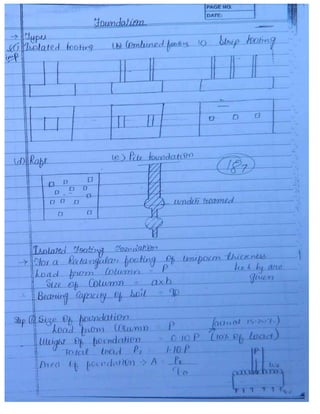 PAGE NO.
DATE:
Foundation
→ Types
(a) Isolated footing (b) Combined footing (c) Strip footing
(d) Raft (e) Pile foundation
187
under reamed
Isolated Footing Foundation
→ For a Rectangular footing of uniform thickness
Load from Column = P
Size of Column = a×b
given
Bearing Capacity of Soil = q0
Step ① Size of foundation
Load from Column = P
Weight of foundation = 0.10 P (10% of load)
Total load P1 = 1.10P
Area of foundation → A = P1
q0